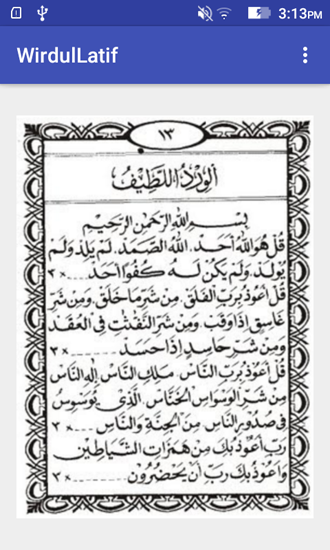 3:13PM
WirdulLatif
١٣
الورد اللطيف
بِسْمِ اللهِ الرَّحْمٰنِ الرَّحِيْمِ
قُلْ هُوَ اللهُ أَحَدٌ، اللهُ الصَّمَدُ، لَمْ يَلِدْ وَلَمْ
يُوْلَدْ، وَلَمْ يَكُنْ لَهُ كُفُوًا أَحَدٌ ... ×٣
قُلْ أَعُوْذُ بِرَبِّ الْفَلَقِ، مِنْ شَرِّ مَا خَلَقَ، وَمِنْ شَرِّ
غَاسِقٍ إِذَا وَقَبَ، وَمِنْ شَرِّ النَّفّٰثٰتِ فِي الْعُقَدِ
وَمِنْ شَرِّ حَاسِدٍ إِذَا حَسَدَ ........ ×٣
قُلْ أَعُوْذُ بِرَبِّ النَّاسِ، مَلِكِ النَّاسِ، إِلٰهِ النَّاسِ
مِنْ شَرِّ الْوَسْوَاسِ الْخَنَّاسِ، الَّذِيْ يُوَسْوِسُ
فِيْ صُدُوْرِ النَّاسِ، مِنَ الْجِنَّةِ وَالنَّاسِ ... ×٣
رَبِّ أَعُوْذُ بِكَ مِنْ هَمَزَاتِ الشَّيَاطِيْنِ
وَأَعُوْذُ بِكَ رَبِّ أَنْ يَحْضُرُوْنِ ...... ×٣